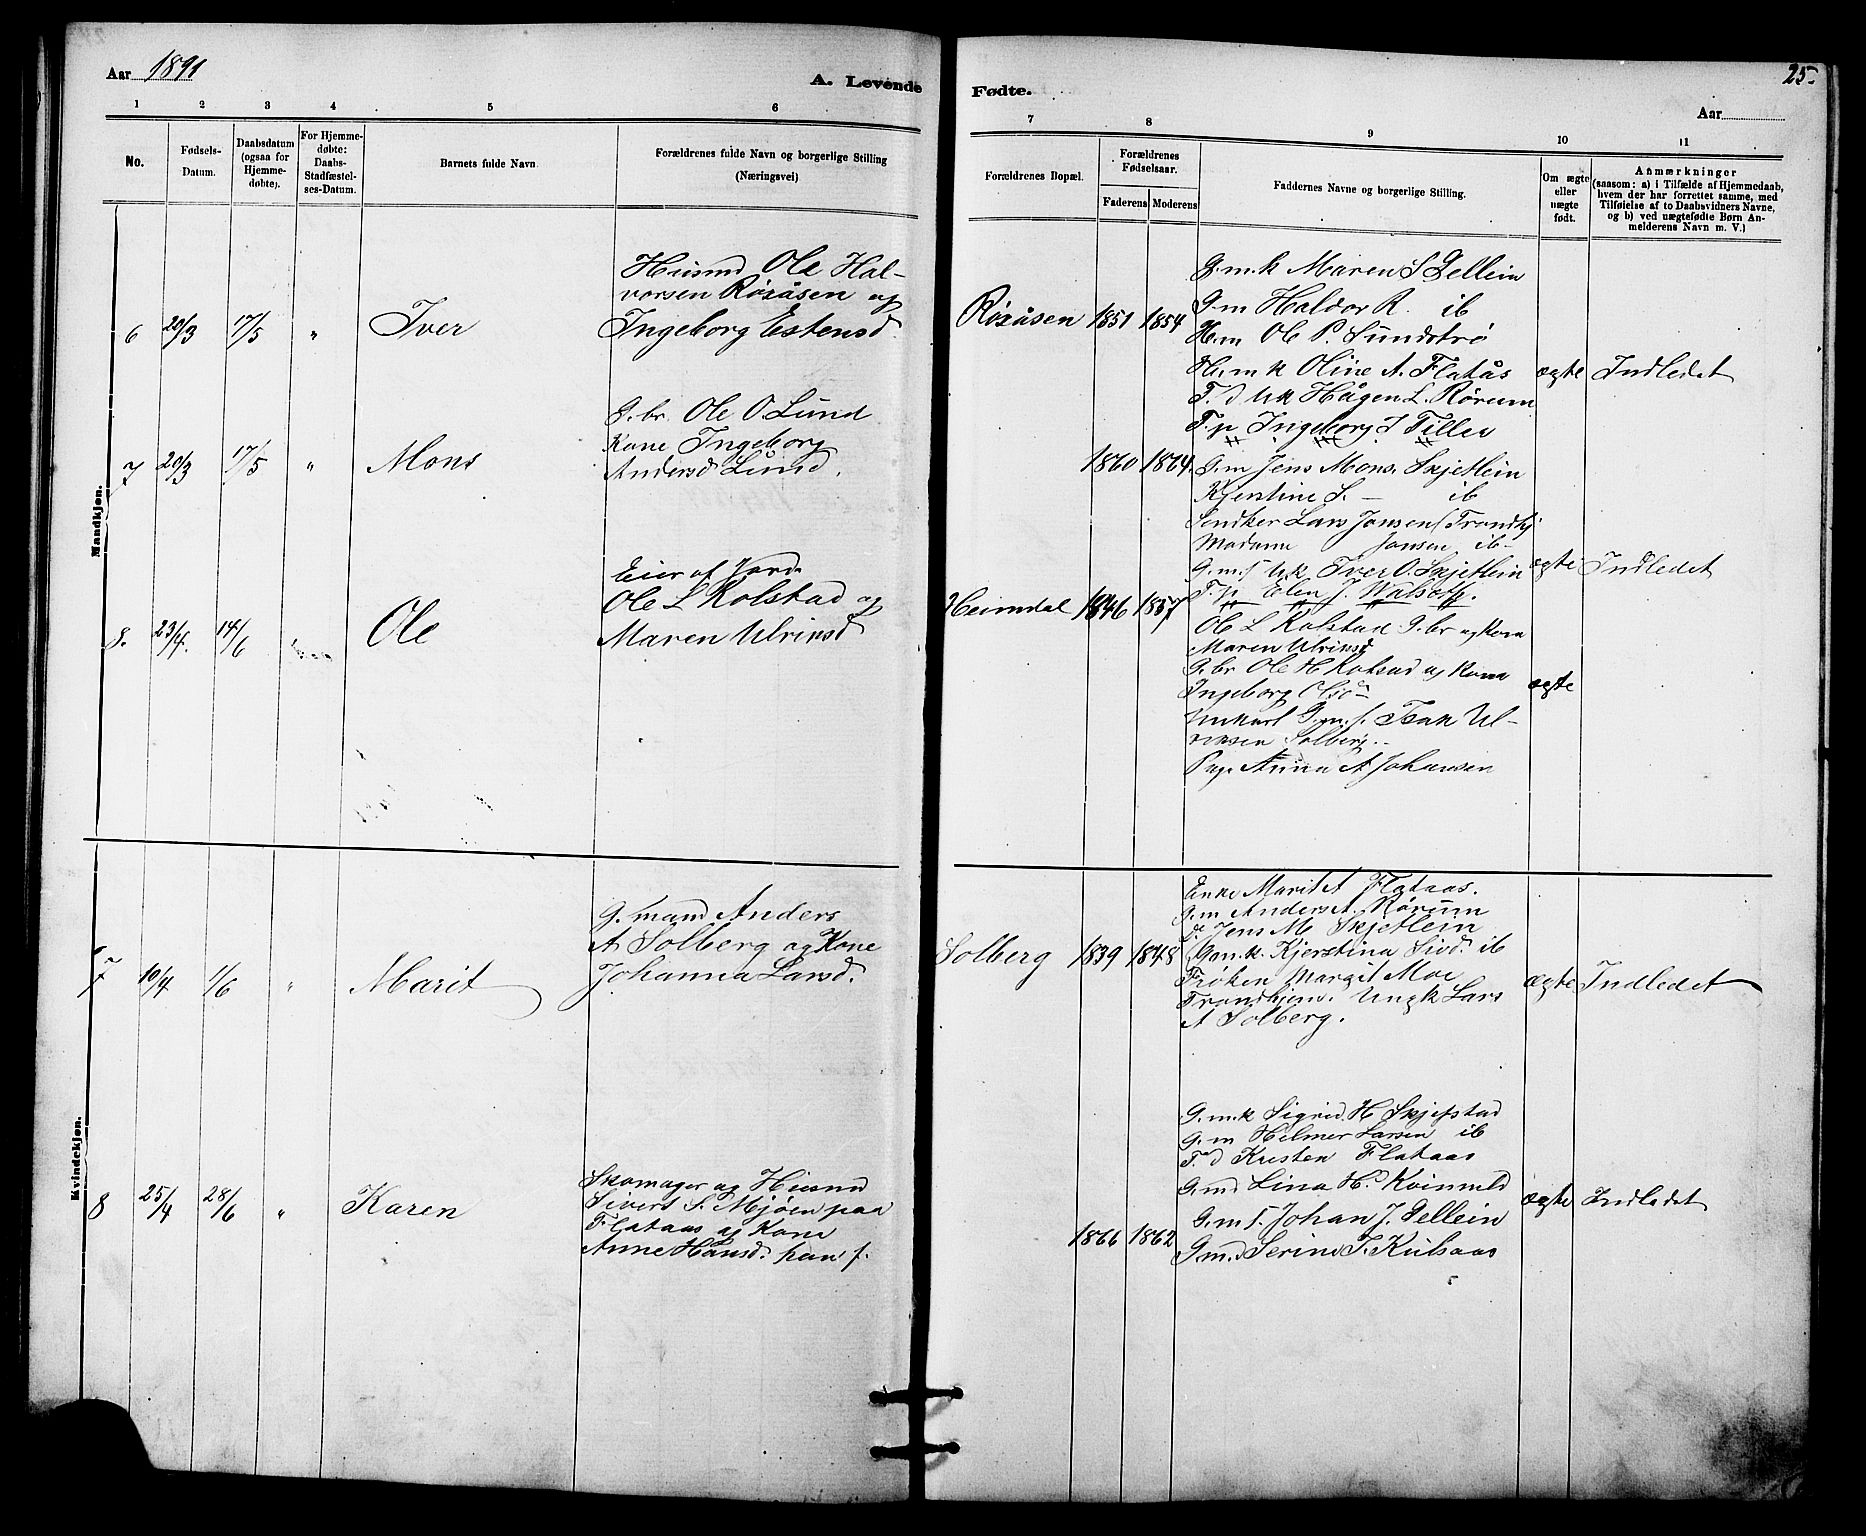 Aar 1891
A. Levende
1 2 3 4 5 6
No.
Fødsels-
Datum.
Daabsdatum
(ogsaa for
Hjemme-
døbte).
For Hjemme-
døbte:
Daabs-
Stadfæstel-
ses-Datum.
Barnets fulde Navn.
Forældrenes fulde Navn og borgerlige Stilling
(Næringsvei)
Mandkjøn.
Husmd Ole Hal-
vorsen Røsåsen og
6 20/3 17/5 " Iver Ingeborg Estensd.
G.br. Ole O Lund
Kone Ingeborg
7 20/3 17/5 " Mons Andersd Lund.
Eier af Jord
Ole L Kolstad og
8. 23/4. 14/6 Ole Maren Ulriksd
Kvindekjøn.
G. mand Anders
A Solberg og Kone
7 10/4 1/6 " Marit Johanna Larsd.
Skomager og Husmd
Sivert S. Mjøen paa
8 25/4 28/6 " Karen Flataas og Kone
Anne Hansd.
25.
Fødte.
Aar
7 8 9 10 11
Forældrenes Bopæl.
Forældrenes
Fødselsaar.
Faderens Moderens
Faddernes Navne og borgerlige Stilling.
Om ægte
eller
uægte
født.
Anmærkninger
(saasom: a) i Tilfælde af Hjemmedaab,
hvem der har forrettet samme, med
Tilføielse af to Daabsvidners Navne,
og b) ved uægtefødte Børn An-
melderens Navn m. V.)
G.m.k Maren S Sellein
Røsåsen 1851 1854 G.m Haldor R. ib
H.m Ole P. Sundstrø
H.m k Oline A. Flatås ægte Indledet
T.d Uk Hågen L. Rørum
T.p Ingeborg J Tiller
1860 1864. G.m Jens Mons. Skjetlein
Kjerstine S. — ib
Lars Jansen Trondhj
Madame Jansen ib
G.m.s Uk Iver O. Skjetlein ægte Indledet
T.p Elen J.
Heimdal 1846 1857 Ole L Kolstad G.br og Kone
Maren Ulriksd
G.br Ole H Kolstad og Kone
Ingeborg Olsd ægte
Ungkarl G.m.s. Isak Ul-
riksen Solberg.
Pige Anna A Johansen
Enke Marit A Flataas.
G.m Anders A. Rørum
d. Jens M Skjetlein
Solberg 1839 1848 Gm.k. Kjerstina Sivd. ib
Frøken Margit Moe ægte Indledet
Trondhjem. Ungk Lars
A Solberg.
G.m.k Sigrid H Skjefstad
G.m Helmer Larsen ib
T.d Kristen Flataas
G.md Lina H. Kvinveld ægte Indledet
G.m.s. Johan J. Sellein
1866 1862 G.m.d Serine J. Kulsaas